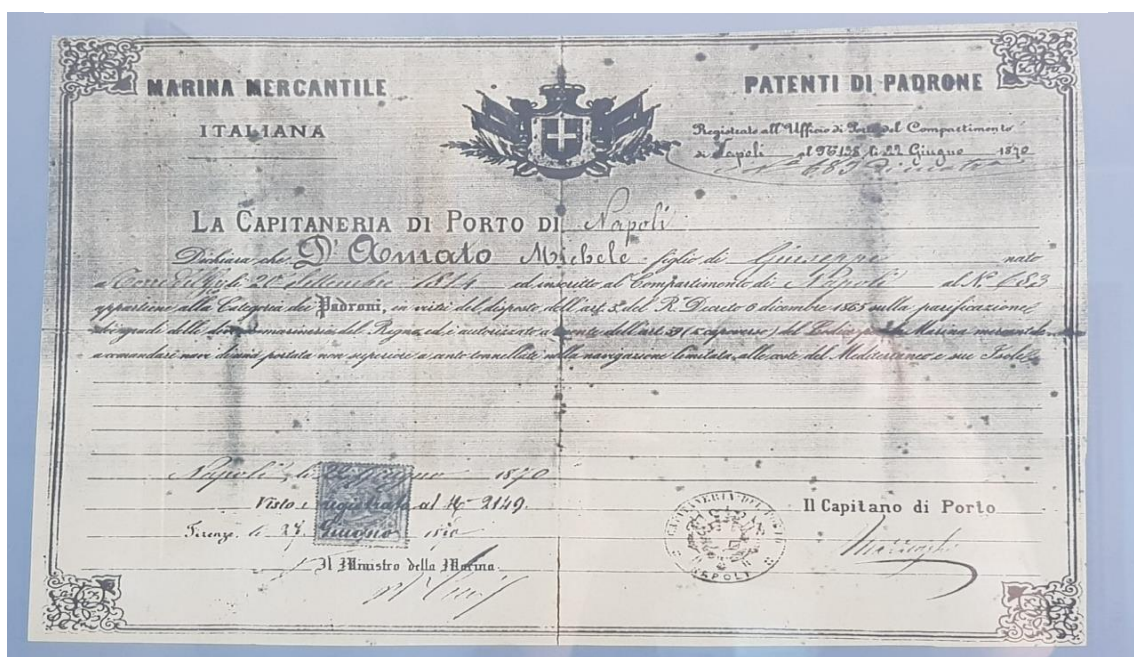 MARINA MERCANTILE
ITALIANA
PATENTI DI PADRONE
Registrato all'Ufficio di Porto del Compartimento
di Napoli al N° 128 li 22 Giugno 1870
N° 683 di matri
LA CAPITANERIA DI PORTO DI Napoli
Dichiara che D'Amato Michele figlio di Giuseppe nato
a li 20 Settembre 1814 ed inscritto al Compartimento di Napoli al N° 683
appartiene alla Categoria dei Padroni, in virtù del disposto dell'art. 5. del R. Decreto 8 dicembre 1865 sulla parificazione
dei gradi delle marinerie del Regno, ed è autorizzato a mente dell'art. 59 (5 capoverso) del Codice per la Marina mercantile
a comandare nave di una portata non superiore a cento tonnellate, nella navigazione limitata alle coste del Mediterraneo e sue Isole
Napoli, li 22 Giugno 1870
Visto e registrato al N° 2149.
Firenze, li 27 Giugno 1870
Il Ministro della Marina
Il Capitano di Porto
CAPITANERIA DEL PORTO
NAPOLI